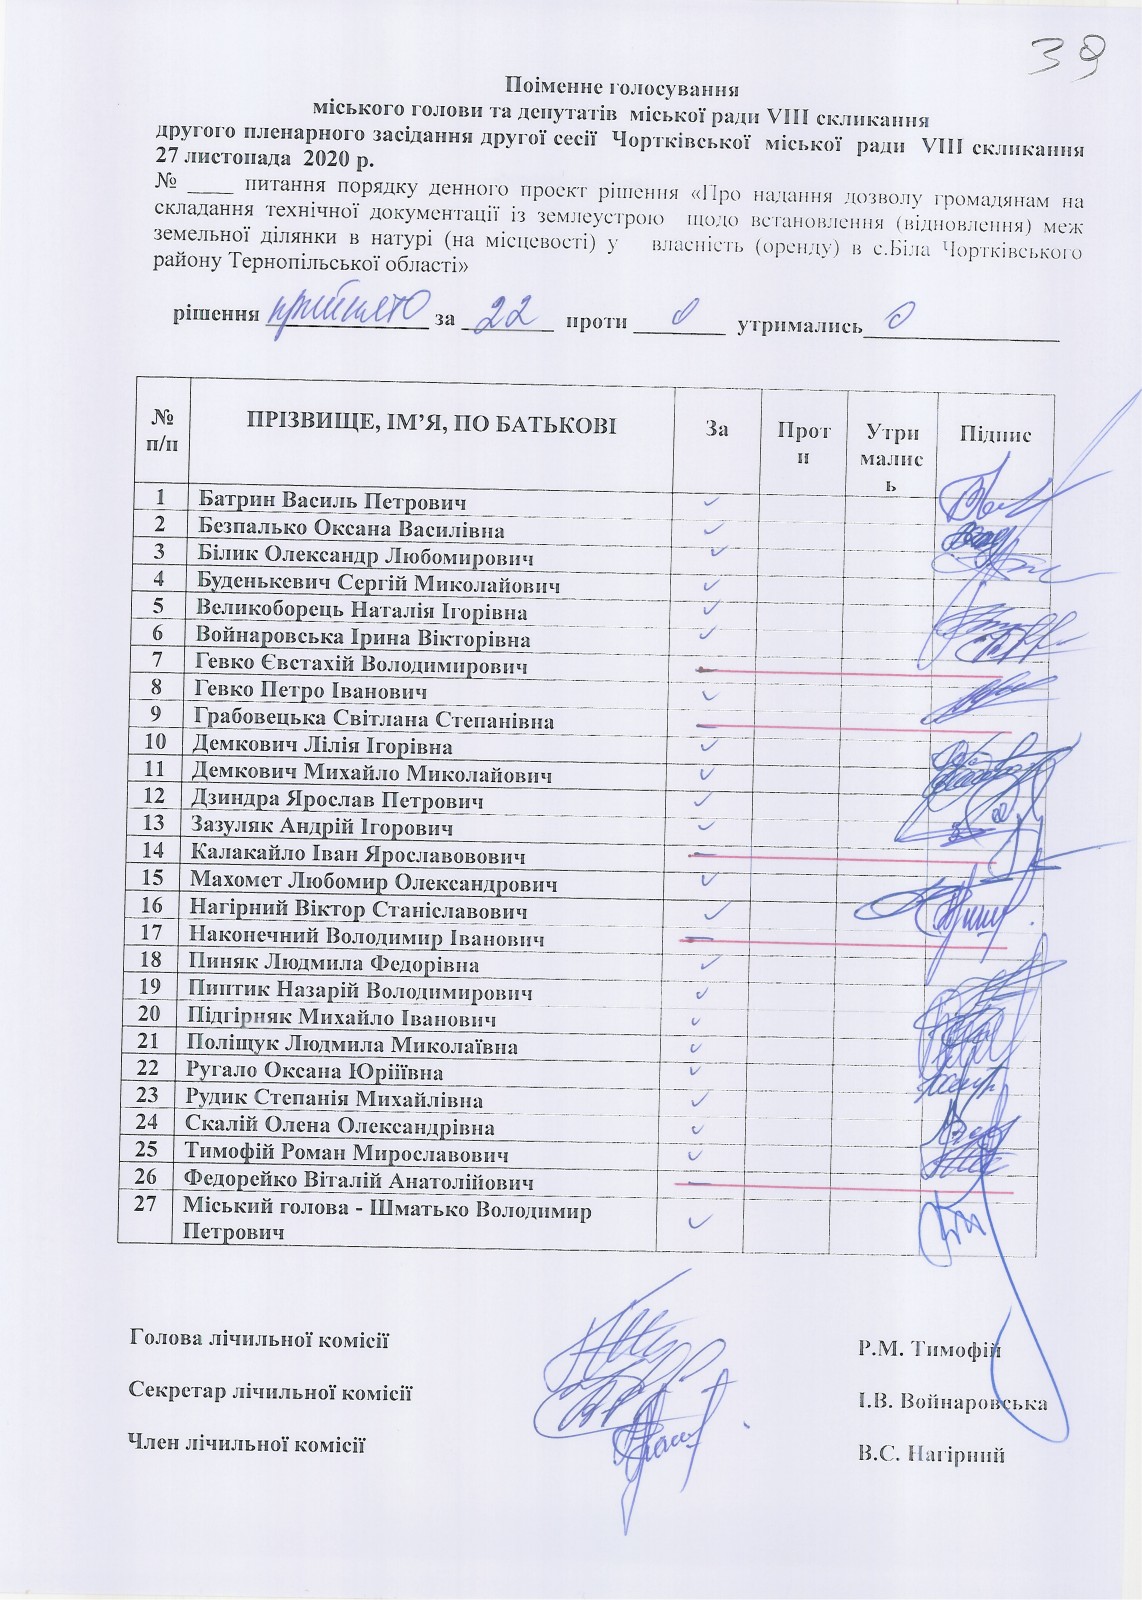 39
Поіменне голосування
міського голови та депутатів міської ради VIII скликання
другого пленарного засідання другої сесії Чортківської міської ради VIII скликання
27 листопада 2020 р.
№ ____ питання порядку денного проект рішення «Про надання дозволу громадянам на
складання технічної документації із землеустрою щодо встановлення (відновлення) меж
земельної ділянки в натурі (на місцевості) у власність (оренду) в с.Біла Чортківського
району Тернопільської області»
рішення прийнято за 22 проти 0 утримались 0
№ п/п ПРІЗВИЩЕ, ІМ’Я, ПО БАТЬКОВІ За Проти Утрималис ь Підпис
1 Батрин Василь Петрович ✓
2 Безпалько Оксана Василівна ✓
3 Білик Олександр Любомирович ✓
4 Буденькевич Сергій Миколайович ✓
5 Великоборець Наталія Ігорівна ✓
6 Войнаровська Ірина Вікторівна ✓
7 Гевко Євстахій Володимирович –
8 Гевко Петро Іванович ✓
9 Грабовецька Світлана Степанівна –
10 Демкович Лілія Ігорівна ✓
11 Демкович Михайло Миколайович ✓
12 Дзиндра Ярослав Петрович ✓
13 Зазуляк Андрій Ігорович ✓
14 Калакайло Іван Ярославовович –
15 Махомет Любомир Олександрович ✓
16 Нагірний Віктор Станіславович ✓
17 Наконечний Володимир Іванович –
18 Пиняк Людмила Федорівна ✓
19 Пиптик Назарій Володимирович ✓
20 Підгірняк Михайло Іванович ✓
21 Поліщук Людмила Миколаївна ✓
22 Ругало Оксана Юріїївна ✓
23 Рудик Степанія Михайлівна ✓
24 Скалій Олена Олександрівна ✓
25 Тимофій Роман Мирославович ✓
26 Федорейко Віталій Анатолійович –
27 Міський голова - Шматько Володимир
Петрович ✓
Голова лічильної комісії Р.М. Тимофій
Секретар лічильної комісії І.В. Войнаровська
Член лічильної комісії В.С. Нагірний